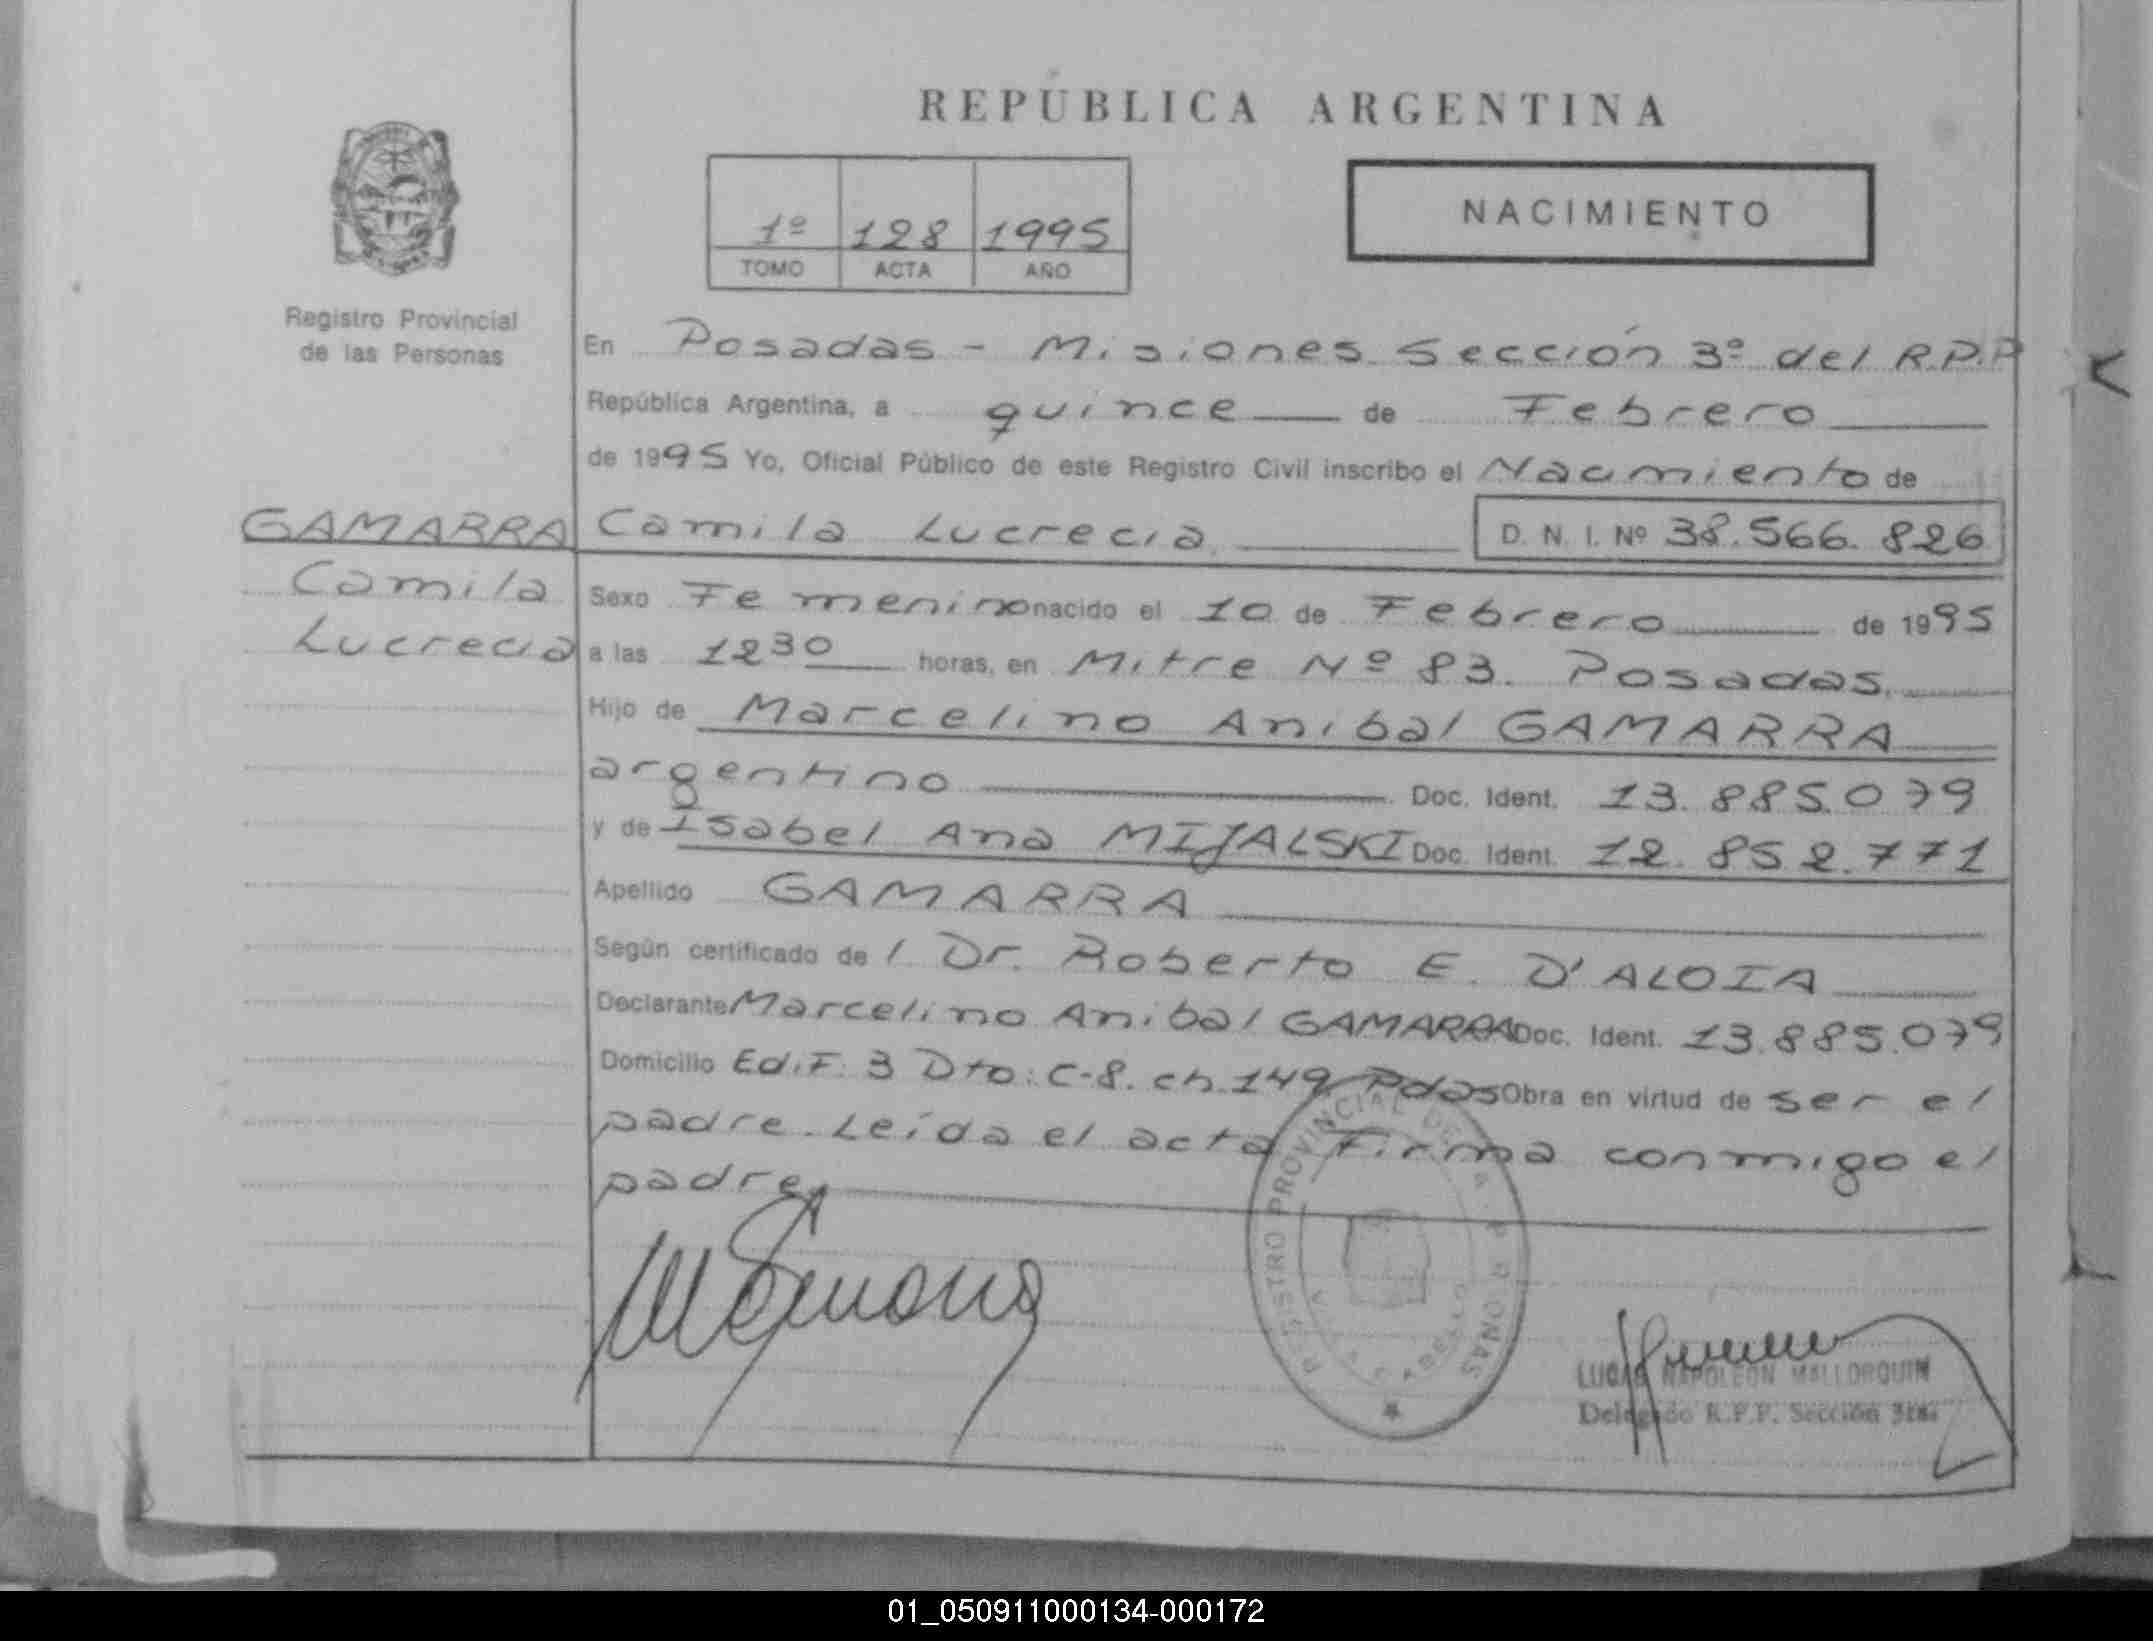 REPÚBLICA ARGENTINA
1º 128 1995
TOMO ACTA AÑO
NACIMIENTO
Registro Provincial
de las Personas
En Posadas - Misiones Sección 3º del R.P.P
República Argentina, a quince de Febrero
de 1995 Yo, Oficial Público de este Registro Civil inscribo el Nacimiento de
GAMARRA Camila Lucrecia D. N. I. Nº 38.566.826
Camila
Lucrecia
Sexo Femenino nacido el 10 de Febrero de 1995
a las 12 30 horas, en Mitre Nº 83. Posadas.
Hijo de Marcelino Anibal GAMARRA
argentino Doc. Ident. 13.885.079
y de Isabel Ana MIJALSKI Doc. Ident. 12.852.771
Apellido GAMARRA
Según certificado de l Dr. Roberto E. D'ALOIA
Declarante Marcelino Anibal GAMARRA Doc. Ident. 13.885.079
Domicilio Edif: 3 Dto: C-8. ch 149 Pdas Obra en virtud de ser el
padre. Leída el acta firma conmigo el
padre
REGISTRO PROVINCIAL DE LAS PERSONAS
LUCAS NAPOLEON MALLORQUIN
Delegado R.P.P. Sección 3ra.
01_050911000134-000172